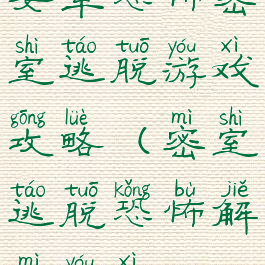 shì táo tuō yóu xì
室逃脱游戏
gōng lüè mì shì
攻略（密室
táo tuō kǒng bù jiě
逃脱恐怖解
mì yóu xì